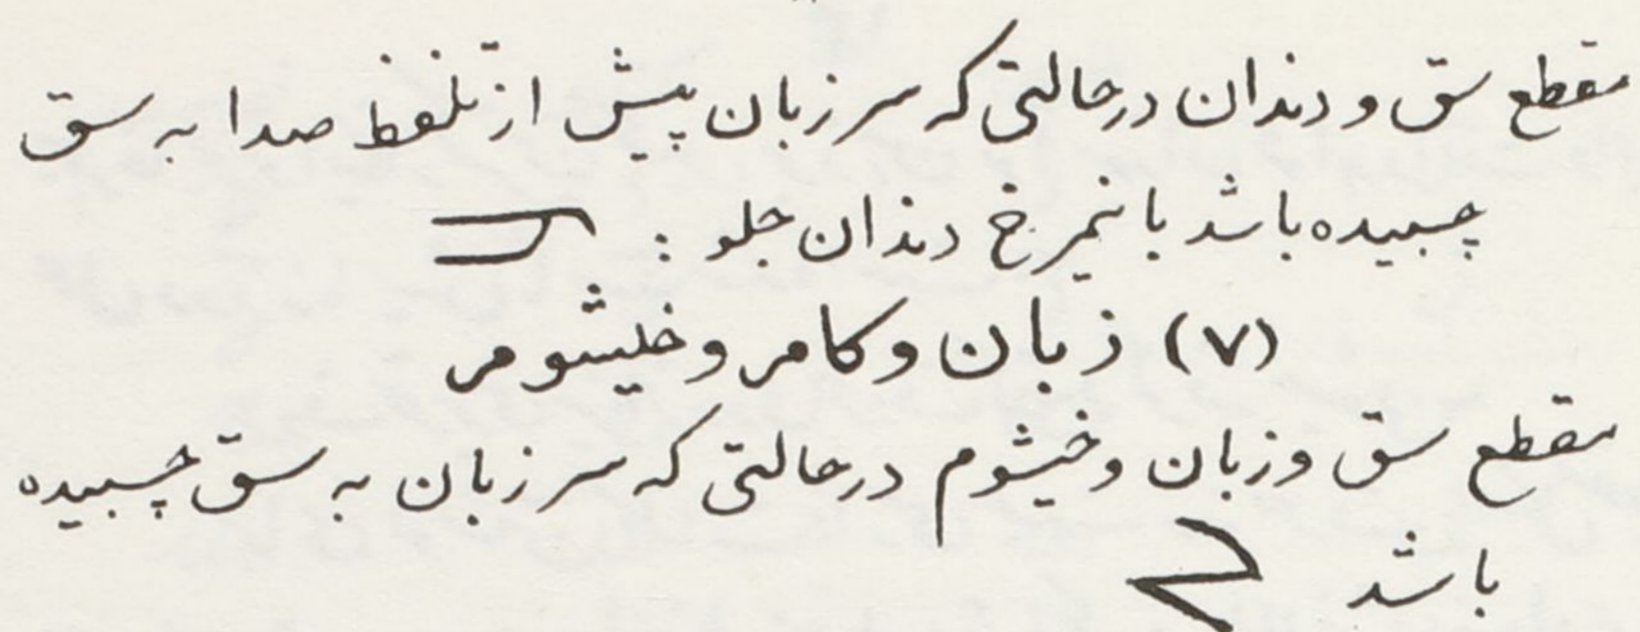 مقطع سق و دندان درحالتی که سر زبان پیش از تلفظ صدا به سق
چسبیده باشد با نیمرخ دندان جلو :
(۷) زبان و کام و خیشوم
مقطع سق و زبان و خیشوم درحالتی که سر زبان به سق چسبیده
باشد